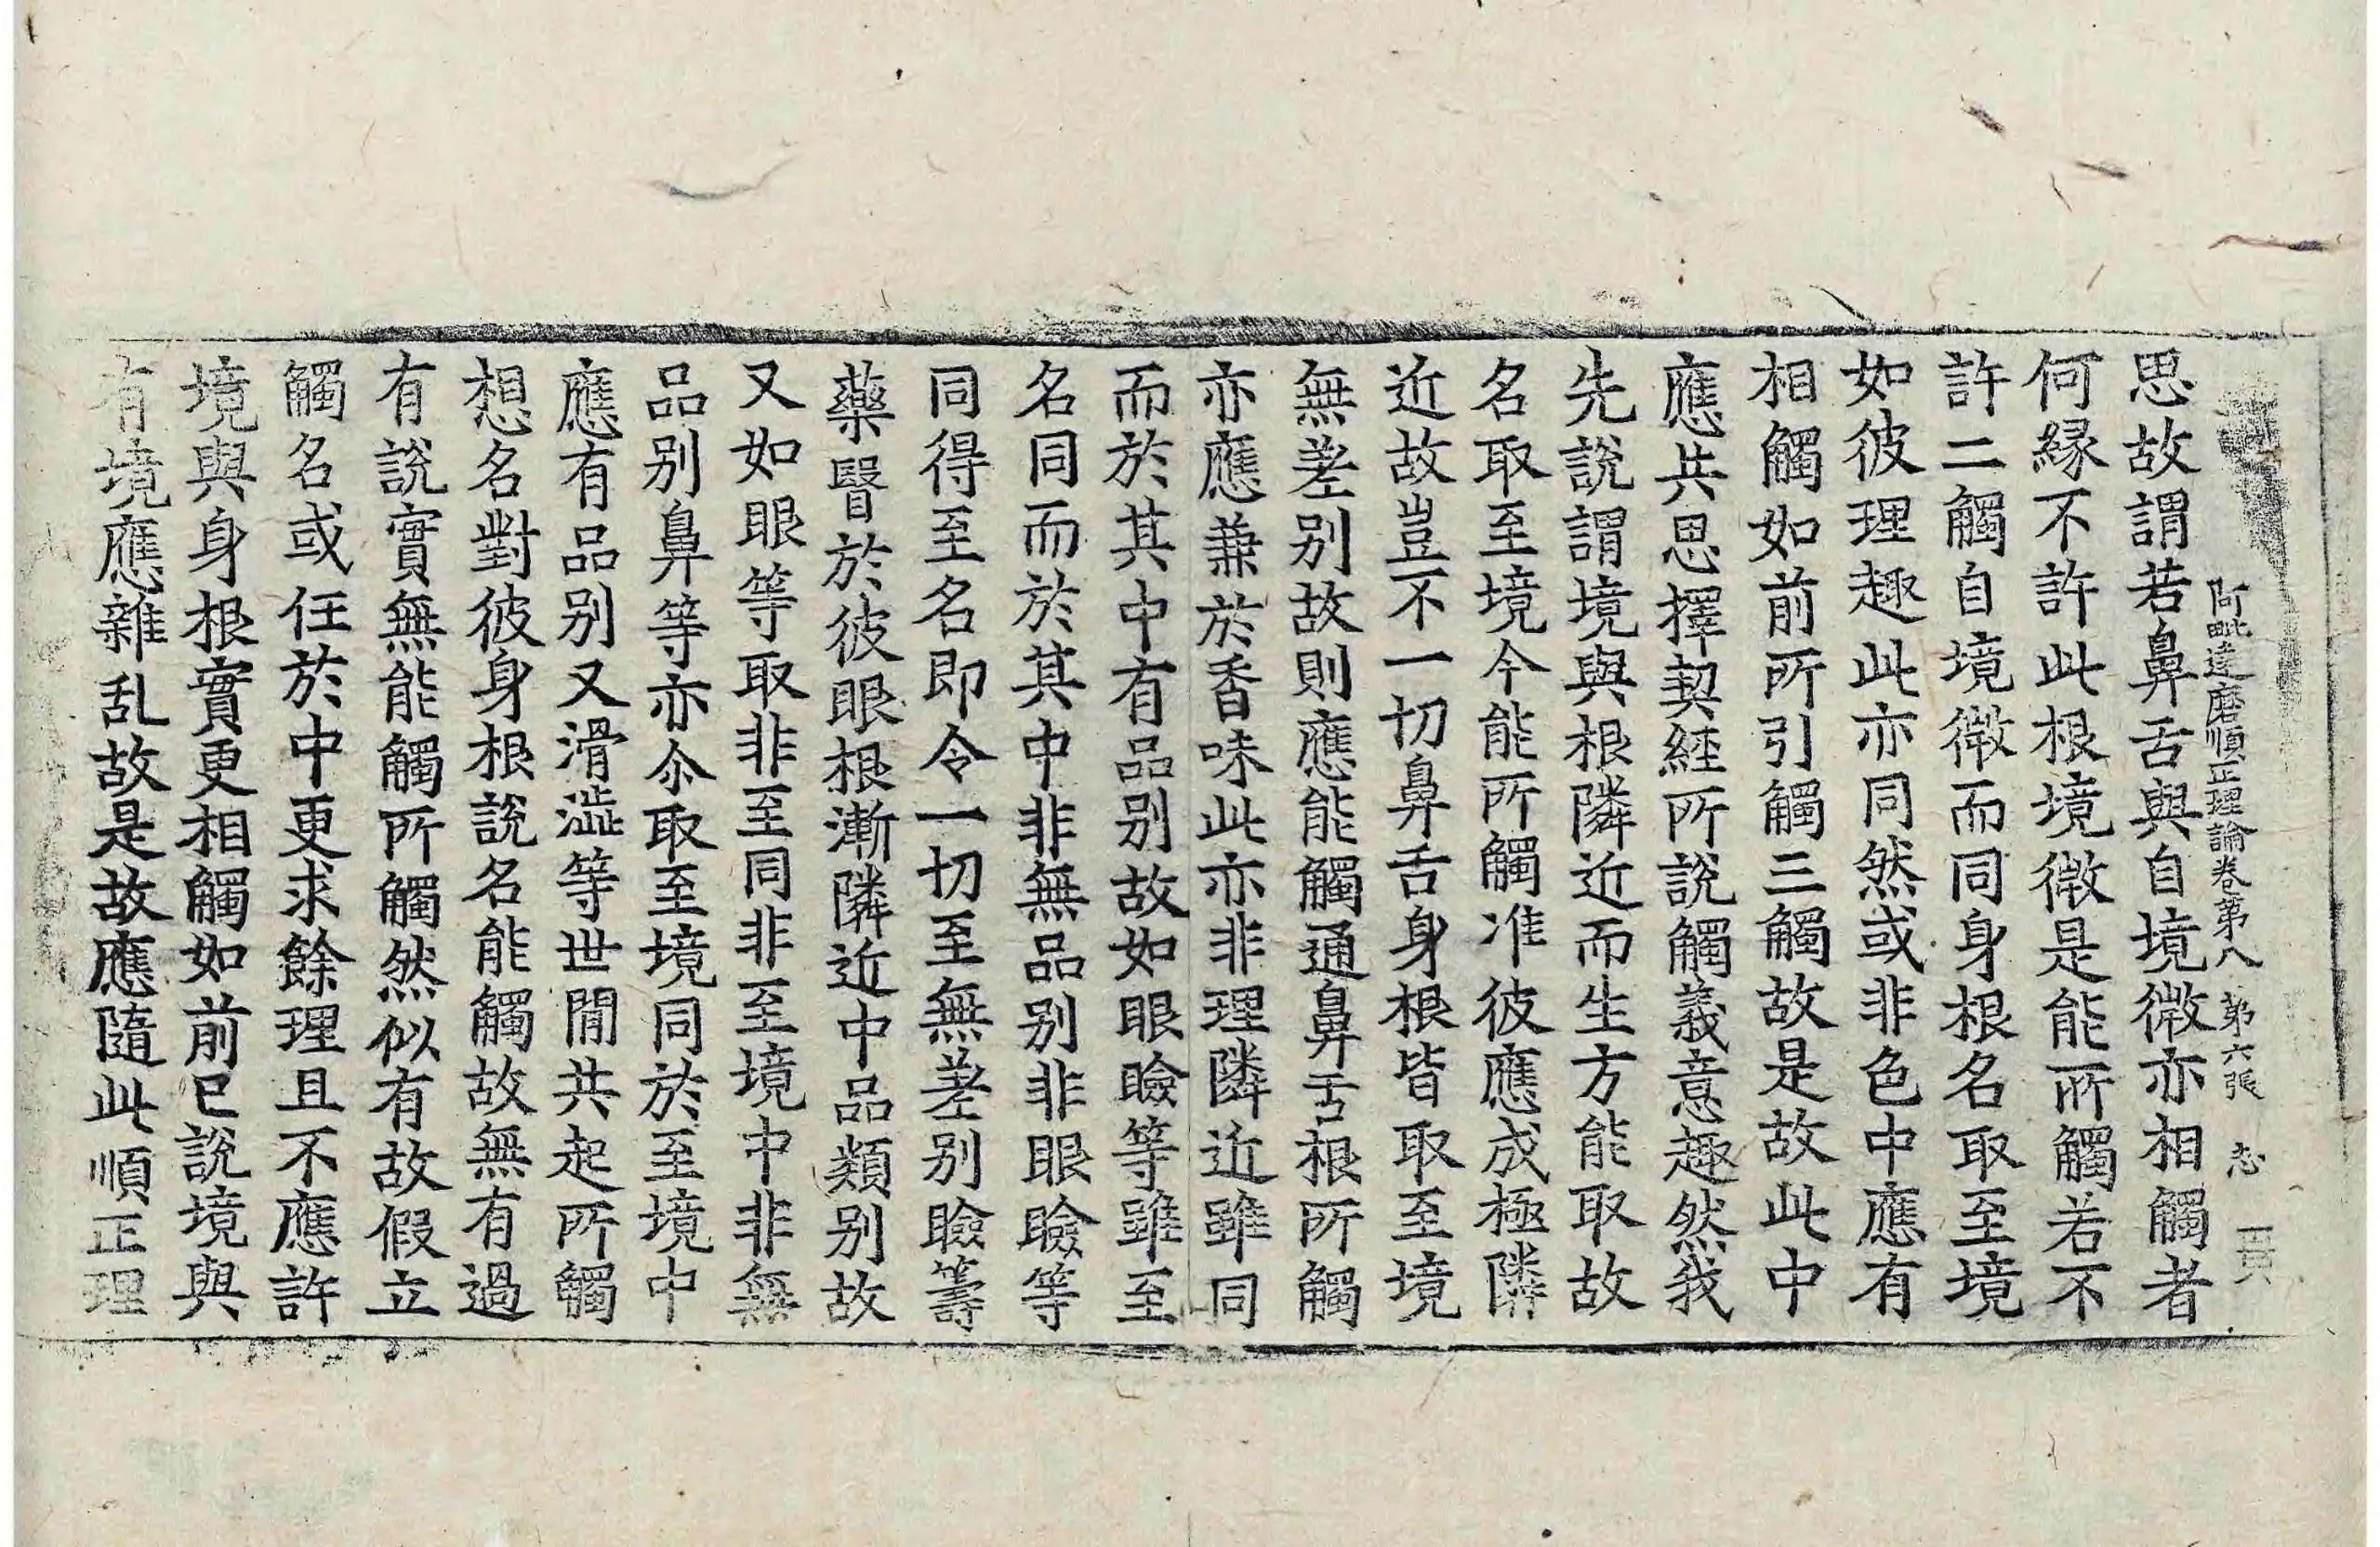 阿毗達磨順正理論卷第八　第六張　志
思故謂若鼻舌與自境微亦相觸者
何緣不許此根境微是能所觸若不
許二觸自境微而同身根名取至境
如彼理趣此亦同然或非色中應有
相觸如前所引觸三觸故是故此中
應共思擇契經所說觸義意趣然我
先說謂境與根隣近而生方能取故
名取至境今能所觸准彼應成極隣
近故豈不一切鼻舌身根皆取至境
無差别故則應能觸通鼻舌根所觸
亦應兼於香味此亦非理隣近雖同
而於其中有品别故如眼瞼等雖至
名同而於其中非無品别非眼瞼等
同得至名即令一切至無差别瞼籌
藥瞖於彼眼根漸隣近中品類别故
又如眼等取非至同非至境中非無
品别鼻等亦尒取至境同於至境中
應有品别又滑澁等世閒共起所觸
想名對彼身根說名能觸故無有過
有說實無能觸所觸然似有故假立
觸名或任於中更求餘理且不應許
境與身根實更相觸如前已說境與
有境應雜乱故是故應隨此順正理